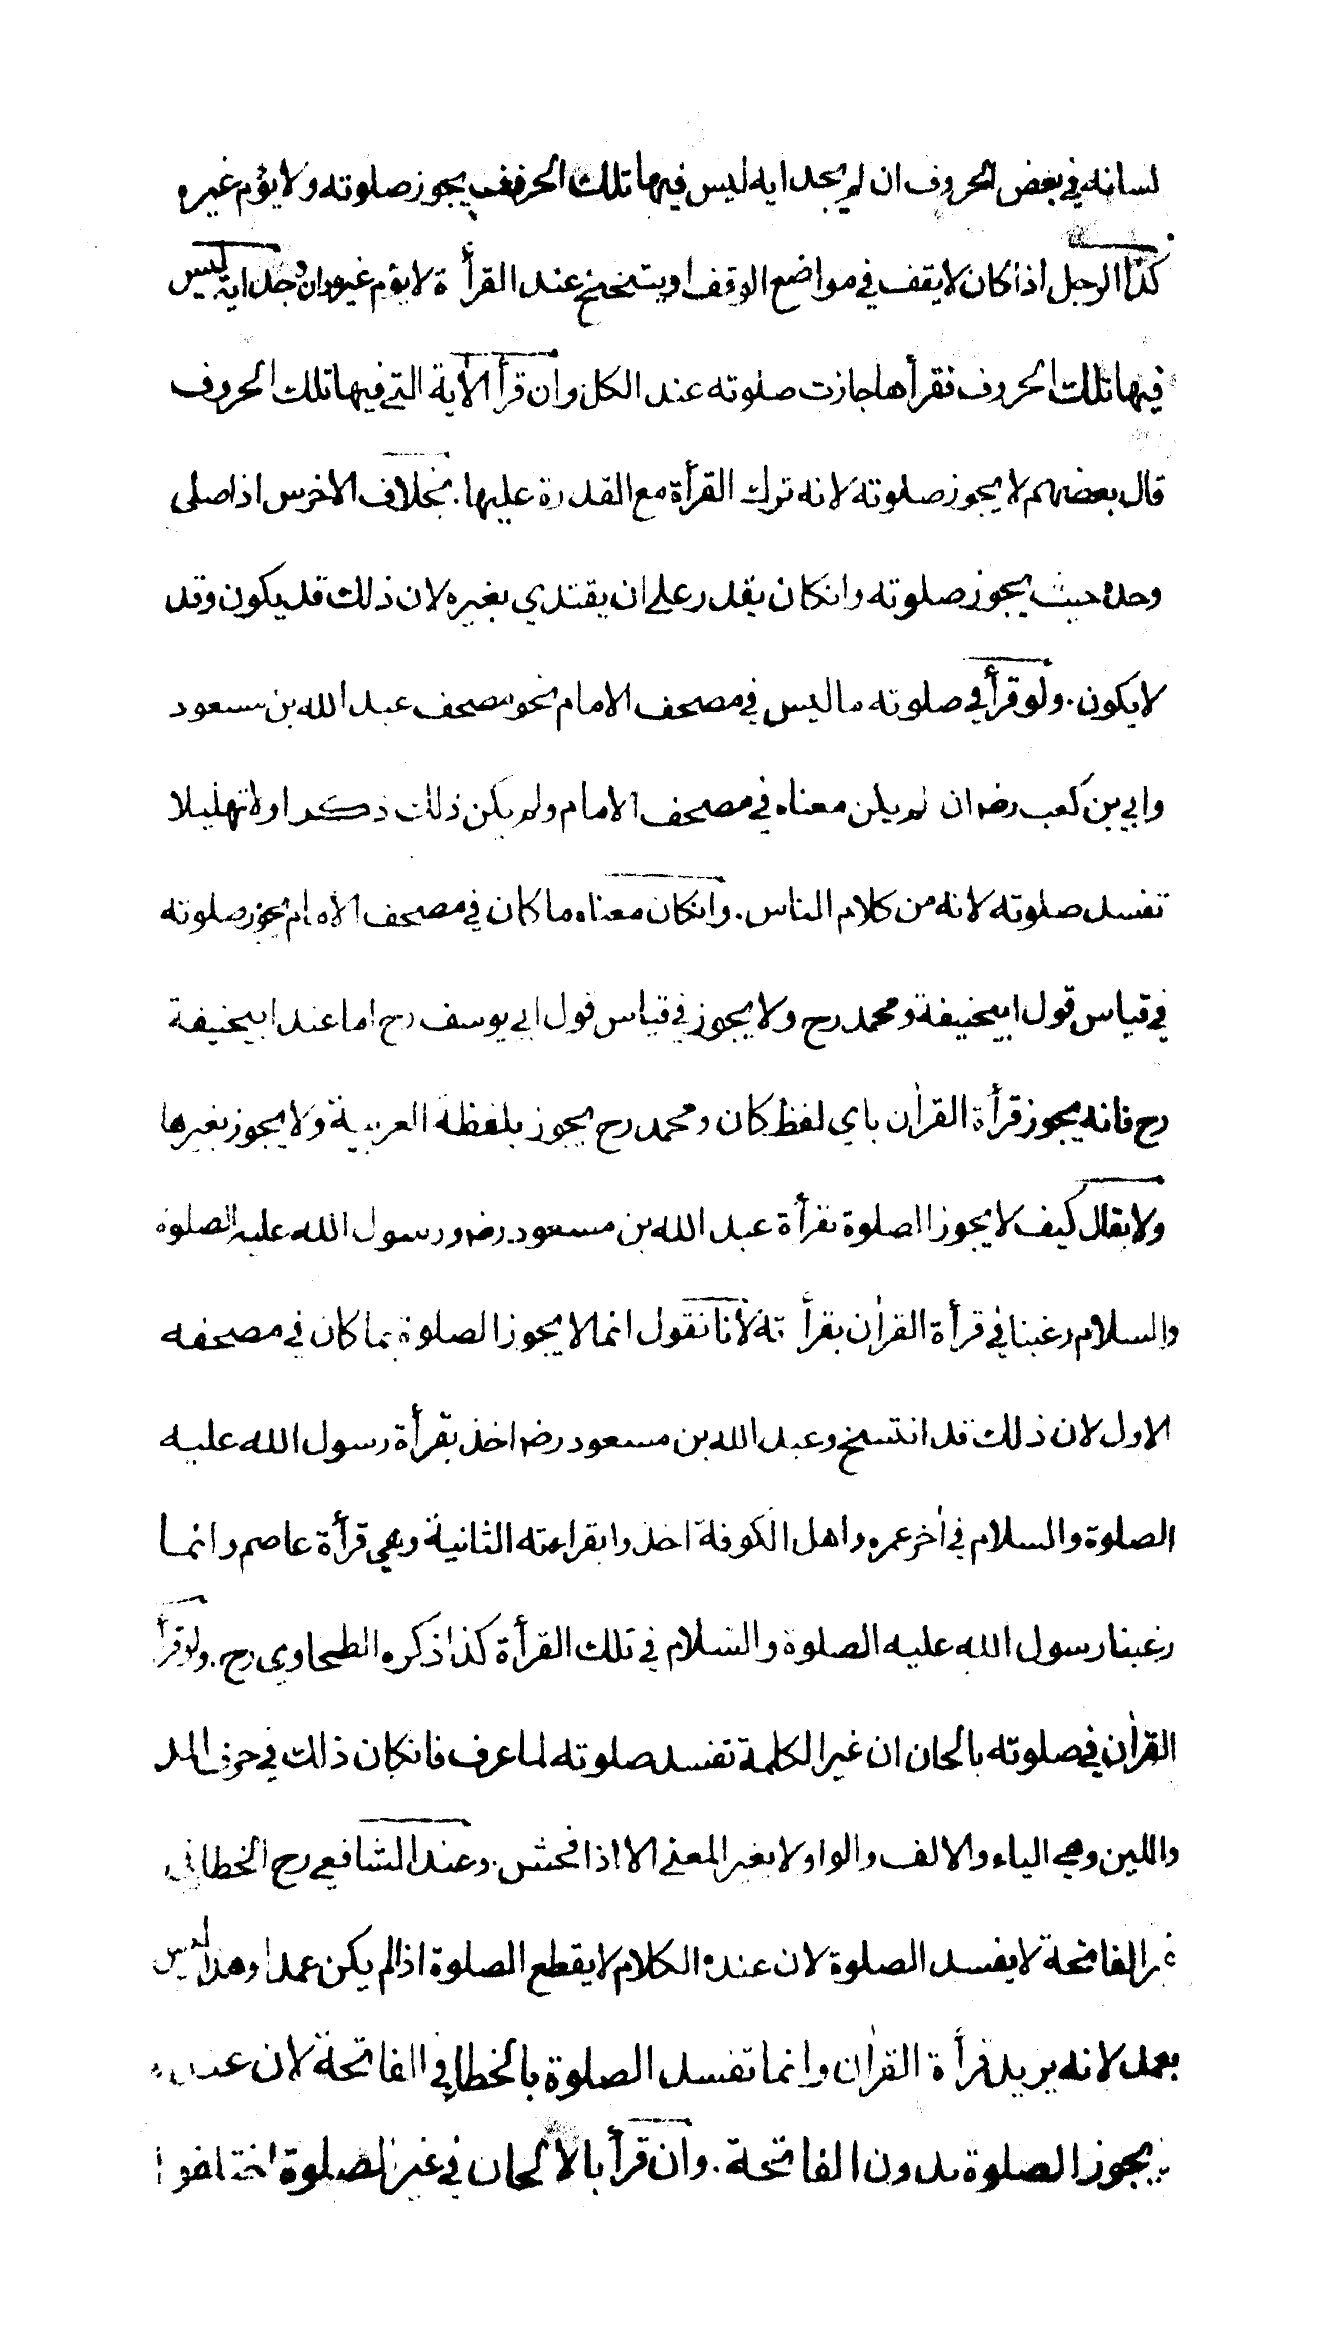 لسانه في بعض الحروف ان لم يجد ايه ليس فيها تلك الحرفف يجوز صلوته ولا يؤم غيره
كذا الرجل اذا كان لا يقف في مواضع الوقف او يتنحنح عند القرأة لا يؤم غيره وان وجد اية ليس
فيها تلك الحروف فقرأها جازت صلوته عند الكل وان قرأ الاية التي فيها تلك الحروف
قال بعضهم لا يجوز صلوته لانه ترك القرأة مع القدرة عليها . بخلاف الاخرس اذا صلى
وحده حيث يجوز صلوته وانكان يقدر على ان يقتدي بغيره لان ذلك قد يكون وقد
لا يكون . ولو قرأ في صلوته ما ليس في مصحف الامام نحو مصحف عبد الله بن مسعود
وابي بن كعب رضه ان لم يكن معناه في مصحف الامام ولم يكن ذلك ذكرا ولا تهليلا
تفسد صلوته لانه من كلام الناس . وانكان معناه ما كان في مصحف الامام يجوز صلوته
في قياس قول ابيحنيفة ومحمد رح ولا يجوز في قياس قول ابي يوسف رح اما عند ابيحنيفة
رح فانه يجوز قرأة القرآن باي لفظ كان ومحمد رح يجوز بلفظة العربية ولا يجوز بغيرها
ولا يقال كيف لا يجوز الصلوة بقرأة عبد الله بن مسعود رضه ورسول الله عليه الصلوة
والسلام رغبنا في قرأة القرآن بقرأته لانا نقول انما لا يجوز الصلوة بما كان في مصحفه
الاول لان ذلك قد انتسخ وعبد الله بن مسعود رضه اخذ بقرأة رسول الله عليه
الصلوة والسلام في آخر عمره واهل الكوفة اخذوا بقراءته الثانية وهي قرأة عاصم وانما
رغبنا رسول الله عليه الصلوة والسلام في تلك القرأة كذا ذكره الطحاوي رح . ولو قرأ
القرآن في صلوته بالحان ان غير الكلمة تفسد صلوته لما عرف فانكان ذلك في حرف المد
واللين وهي الياء والالف والواو لا يغير المعنى الا اذا فحش . وعند الشافعي رح الخطا في
غير الفاتحة لا يفسد الصلوة لان عنده الكلام لا يقطع الصلوة اذا لم يكن عمدا وهذا ليس
بعمد لانه يريد قرأة القرآن وانما تفسد الصلوة بالخطا في الفاتحة لان عنده
يجوز الصلوة بدون الفاتحة . وان قرأ بالالحان في غير الصلوة اختلفوا